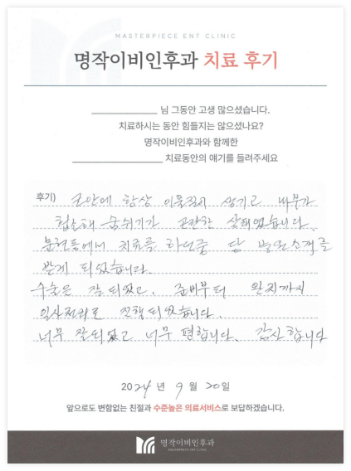 MASTERPIECE ENT CLINIC
명작이비인후과 치료 후기
님 그동안 고생 많으셨습니다.
치료하시는 동안 힘들지는 않으셨나요?
명작이비인후과와 함께한
치료동안의 얘기를 들려주세요
후기) 코안에 항상 이물질이 생기고 비중가
협소해 숨쉬기가 곤란한 상태였습니다.
치료를 하던중 단 받은 소개를
받게 되었습니다.
수술은 잘 되었고, 준비부터 완치까지
일사천리로 진행되었습니다.
너무 잘되었고 너무 편합니다. 감사합니다
2024년 9월 20일
앞으로도 변함없는 친절과 수준높은 의료서비스로 보답하겠습니다.
명작이비인후과
MASTERPIECE ENT CLINIC